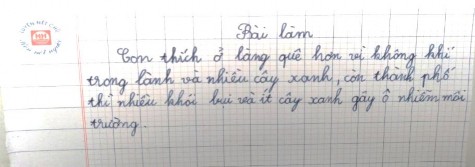 Bài làm
Con thích ở làng quê hơn vì không khí
trong lành và nhiều cây xanh, còn thành phố
thì nhiều khói bụi và ít cây xanh gây ô nhiễm môi
trường.